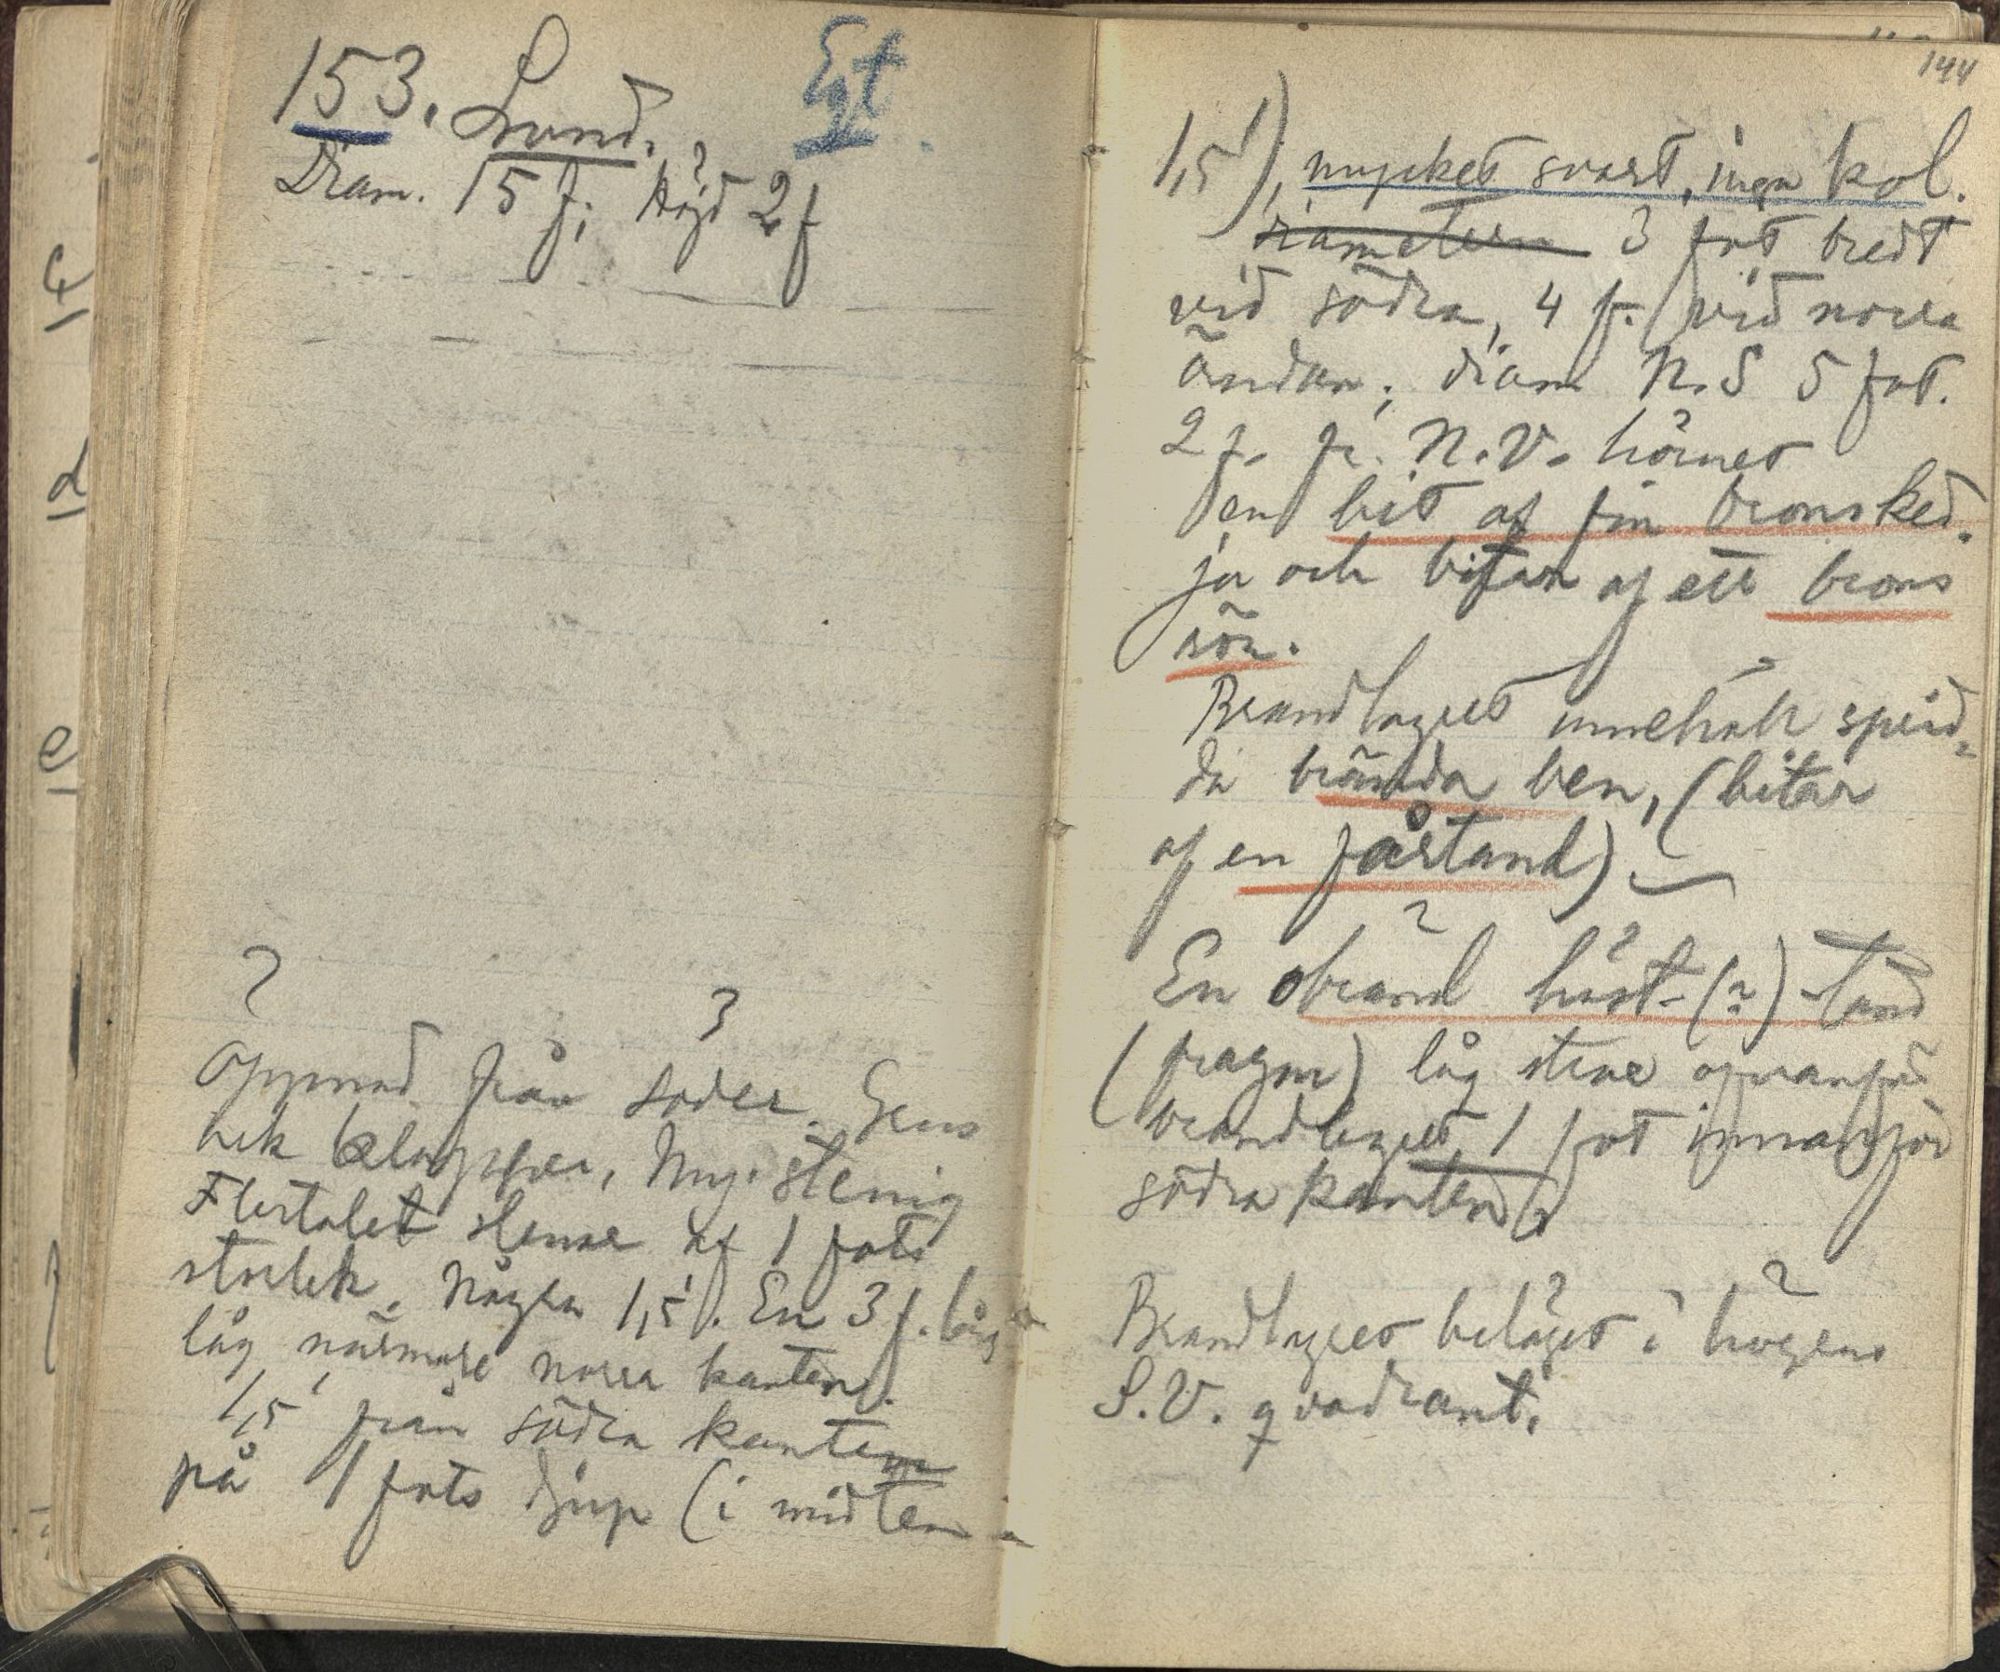 153. Lund.
Egt.
Diam. 15 f; Höjd 2 f
Öppnad från söder. Gens
lik klapper, My. stenig
Flertalet stenar af 1 fots
storlek. Några 1,5'. En 3 f. lång
låg närmare norra kanten.
1,5' från södra kanten
på 1 fots djup (i midten
144
1,5'), mycket svart, inga kol.
diametern 3 fot bredt
vid södra, 4 f. vid norra
ändan; diam N.S 5 fot.
2 f. fr. N.V. hörnet
en bit af fin bronsked-
ja och bitar af ett brons
rör.
Brandlagret innehöll sprid-
da brända ben, (bitar
af en fårtand)
En obränd häst-(?)-tand
(fragm) låg strax ofvanpå
brandlagret 1 fot innanför
södra kanten
Brandlagret beläget i högens
S.V. qvadrant.